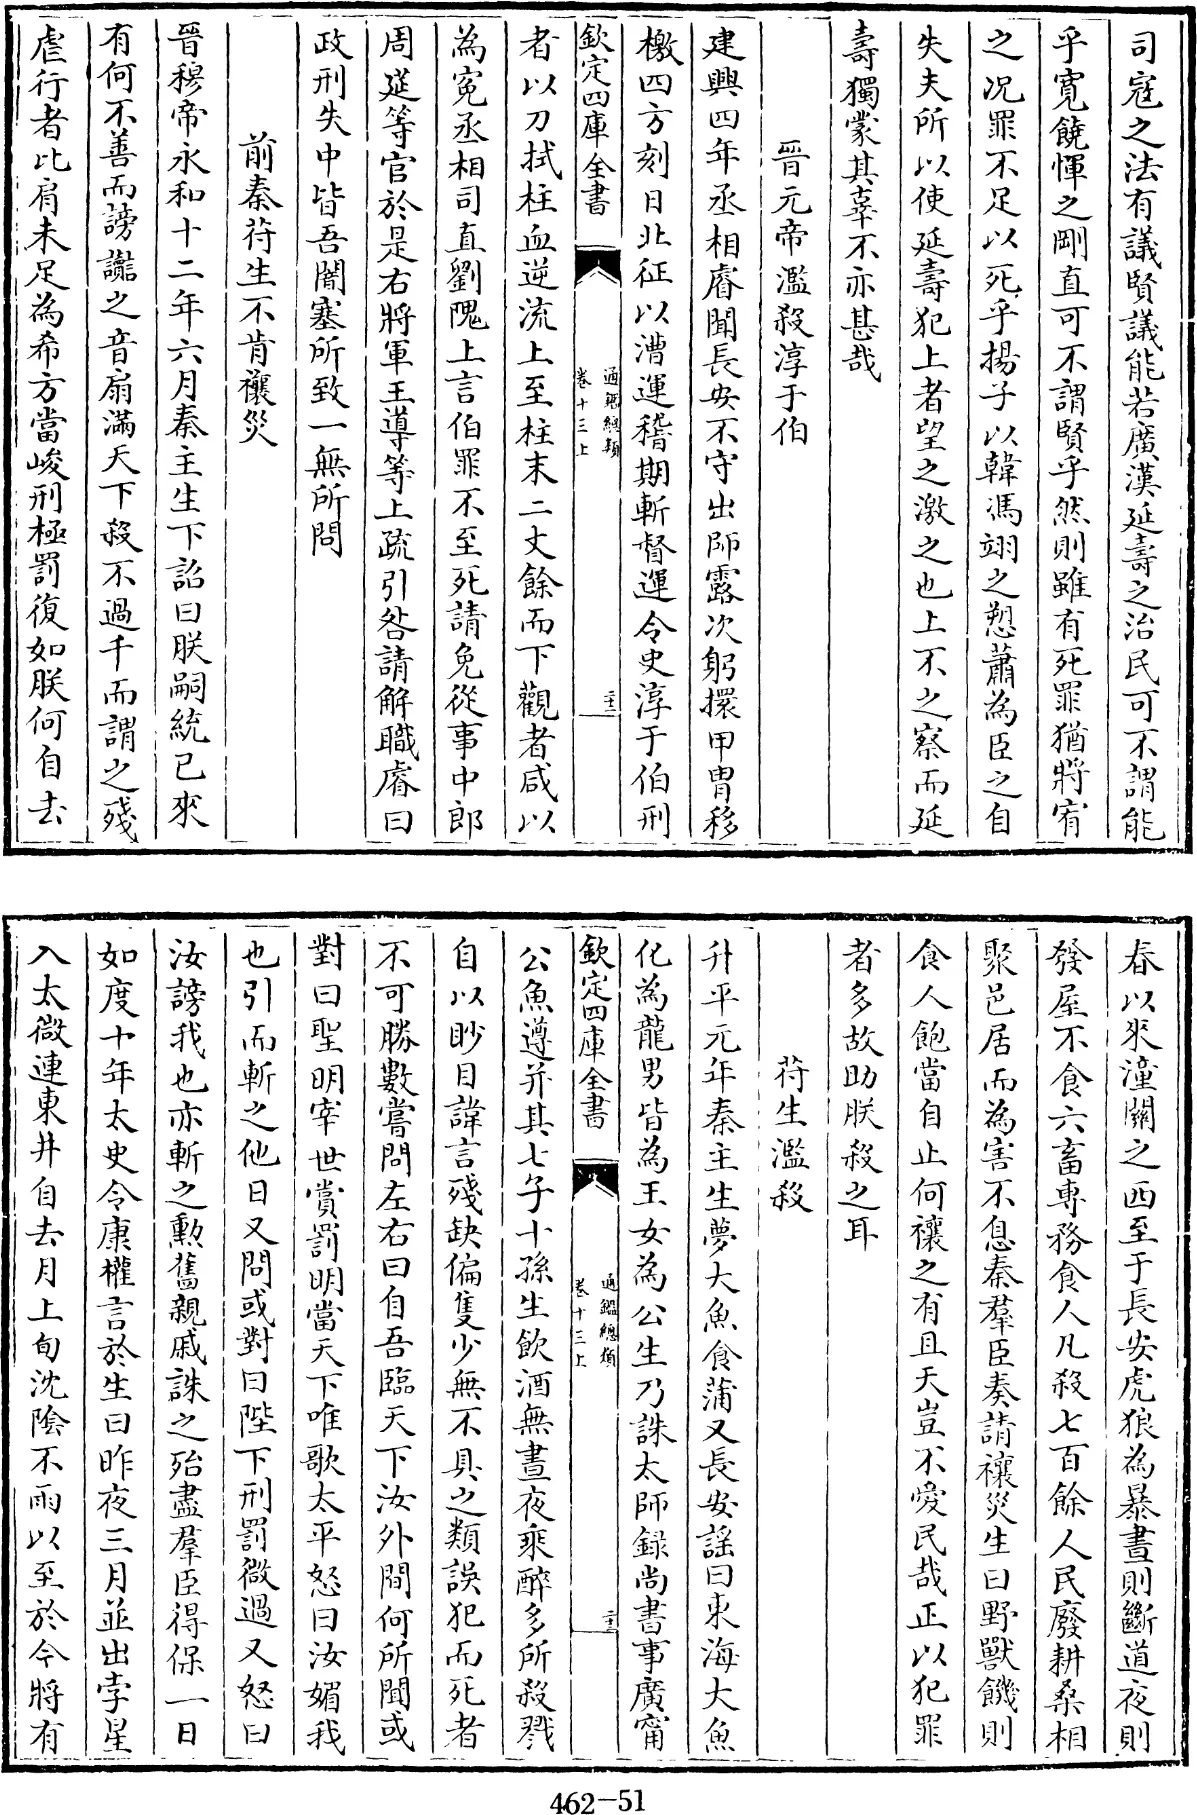 司寇之法有議賢議能若廣漢延壽之治民可不謂能
乎寛饒惲之剛直可不謂賢乎然則雖有死罪猶將宥
之况罪不足以死乎揚子以韓馮翊之愬蕭為臣之自
失夫所以使延壽犯上者望之激之也上不之察而延
壽獨蒙其辜不亦甚哉
晉元帝濫殺淳于伯
建興四年丞相睿聞長安不守出師露次躬擐甲胄移
檄四方刻日北征以漕運稽期斬督運令史淳于伯刑
欽定四庫全書
通鑑總類
卷十三上
二十二
者以刀拭柱血逆流上至柱末二丈餘而下觀者咸以
為寃丞相司直劉隗上言伯罪不至死請免從事中郎
周莚等官於是右將軍王導等上疏引咎請解職睿曰
政刑失中皆吾闇塞所致一無所問
前秦苻生不肯禳災
晉穆帝永和十二年六月秦主生下詔曰朕嗣統已來
有何不善而謗讟之音扇滿天下殺不過千而謂之殘
虐行者比肩未足為希方當峻刑極罰復如朕何自去
春以來潼關之西至于長安虎狼為暴晝則斷道夜則
發屋不食六畜專務食人凡殺七百餘人民廢耕桑相
聚邑居而為害不息秦羣臣奏請禳災生曰野獸饑則
食人飽當自止何禳之有且天豈不愛民哉正以犯罪
者多故助朕殺之耳
苻生濫殺
升平元年秦主生夢大魚食蒲又長安謠曰東海大魚
化為龍男皆為王女為公生乃誅太師録尚書事廣甯
欽定四庫全書
通鑑總類
卷十三上
二十三
公魚遵并其七子十孫生飲酒無晝夜乘醉多所殺戮
自以眇目諱言殘缺偏隻少無不具之類誤犯而死者
不可勝數嘗問左右曰自吾臨天下汝外間何所聞或
對曰聖明宰世賞罰明當天下唯歌太平怒曰汝媚我
也引而斬之他日又問或對曰陛下刑罰微過又怒曰
汝謗我也亦斬之勲舊親戚誅之殆盡羣臣得保一日
如度十年太史令康權言於生曰昨夜三月並出孛星
入太微連東井自去月上旬沈隂不雨以至於今將有
462-51